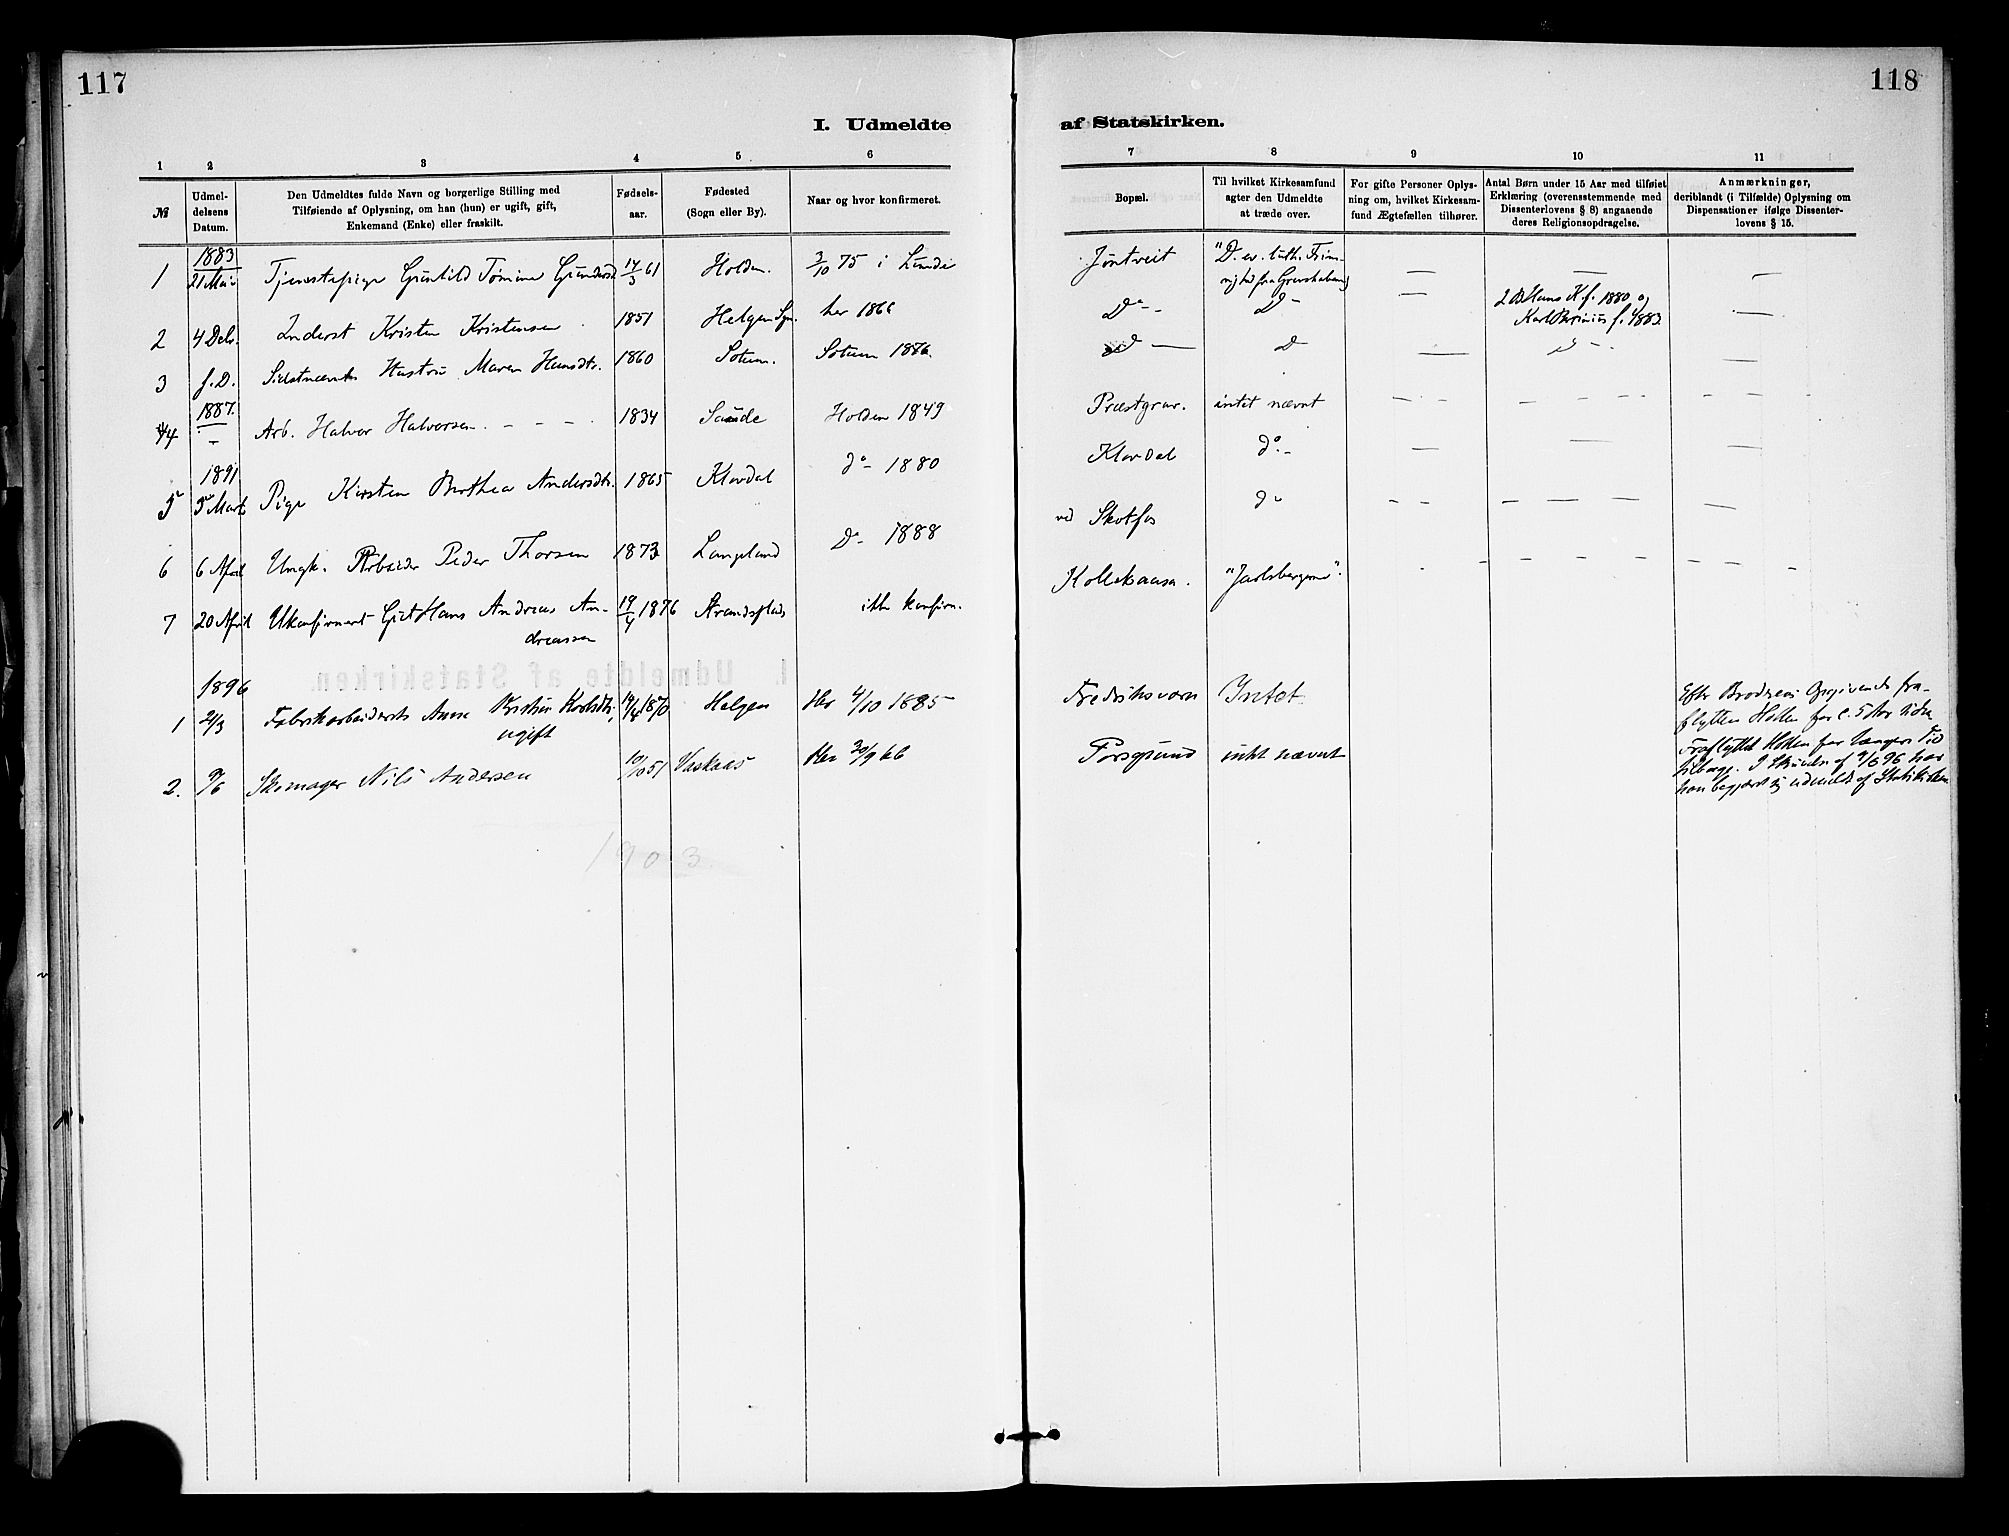 117
118
I. Udmeldte
af Statskirken.
1 2 3 4 5 6
7 8 9 10 11
№
Udmel-
delsens
Datum.
Den Udmeldtes fulde Navn og borgerlige Stilling med
Tilføiende af Oplysning, om han (hun) er ugift, gift,
Enkemand (Enke) eller fraskilt.
Fødsels-
aar.
Fødested
(Sogn eller By).
Naar og hvor konfirmeret.
Bopæl.
Til hvilket Kirkesamfund
agter den Udmeldte
at træde over.
For gifte Personer Oplys-
ning om, hvilket Kirkesam-
fund Ægtefællen tilhører.
Antal Børn under 15 Aar med tilføiet
Erklæring (overensstemmende med
Dissenterlovens § 8) angaaende
deres Religionsopdragelse.
Anmærkninger,
deriblandt (i Tilfælde) Oplysning om
Dispensationer ifølge Dissenter-
lovens § 15.
1883
1 21 Mai Tjenestepige Gunhild Tomine 14/3 61 Holden. 3/10 75 i Lunde
Jøntveit "D. ev. luth. Frime-
— — —
2 4 Debr. Inderst Kristen Kristensen 1851 Helgen Sgn. her 1866
Do — D — — 2 B. Hans K f. 1880 og
Karl f. 1883. —
3 f. D. Sidstnævntes Hustru Maren Hansdtr. 1860 Solum. Solum 1876.
D — D — D — —
1887.
4 — Arb. Halvor Halvorsen. — — — 1834 Saude Holden 1849
Præstgrav. intet nævnt — — — — — — —
1891
5 5 Marts Pige Kirsten Berthea Andersdtr. 1865 Klovdal do — 1880
Klovdal do. — — — —
6 6 April Ungk. Arbeider Peder Thorsen 1873 Langland Do — 1888
ved Skotfos do — — — — — — —
7 20 April Ukonfirmert Gut Hans Andreas An-
dreassen 19/4 1876 Strandsplads ikke konfirm.
Kollekaasa. "Jarlsbergerne". — — — — — — —
1896
1 2/3 Fabrikarbeiderske Anne Kristine Karlsdtr.,
ugift 14/4 1870 Helgen Her 4/10 1885
Fredriksværn Intet.
Efter Broderens Opgivende fra-
flyttet Holden for c. 5 Aar siden
2. 9/6 Skomager Nils Andersen 10/10 51 Vaskaas Her 30/9 66
Porsgrund intet nævnt
Fraflyttet Holden for længere Tid
tilbage. I Skrivelse af 9/6 96 har
han begjært sig udmeldt af Statskirken
1903.